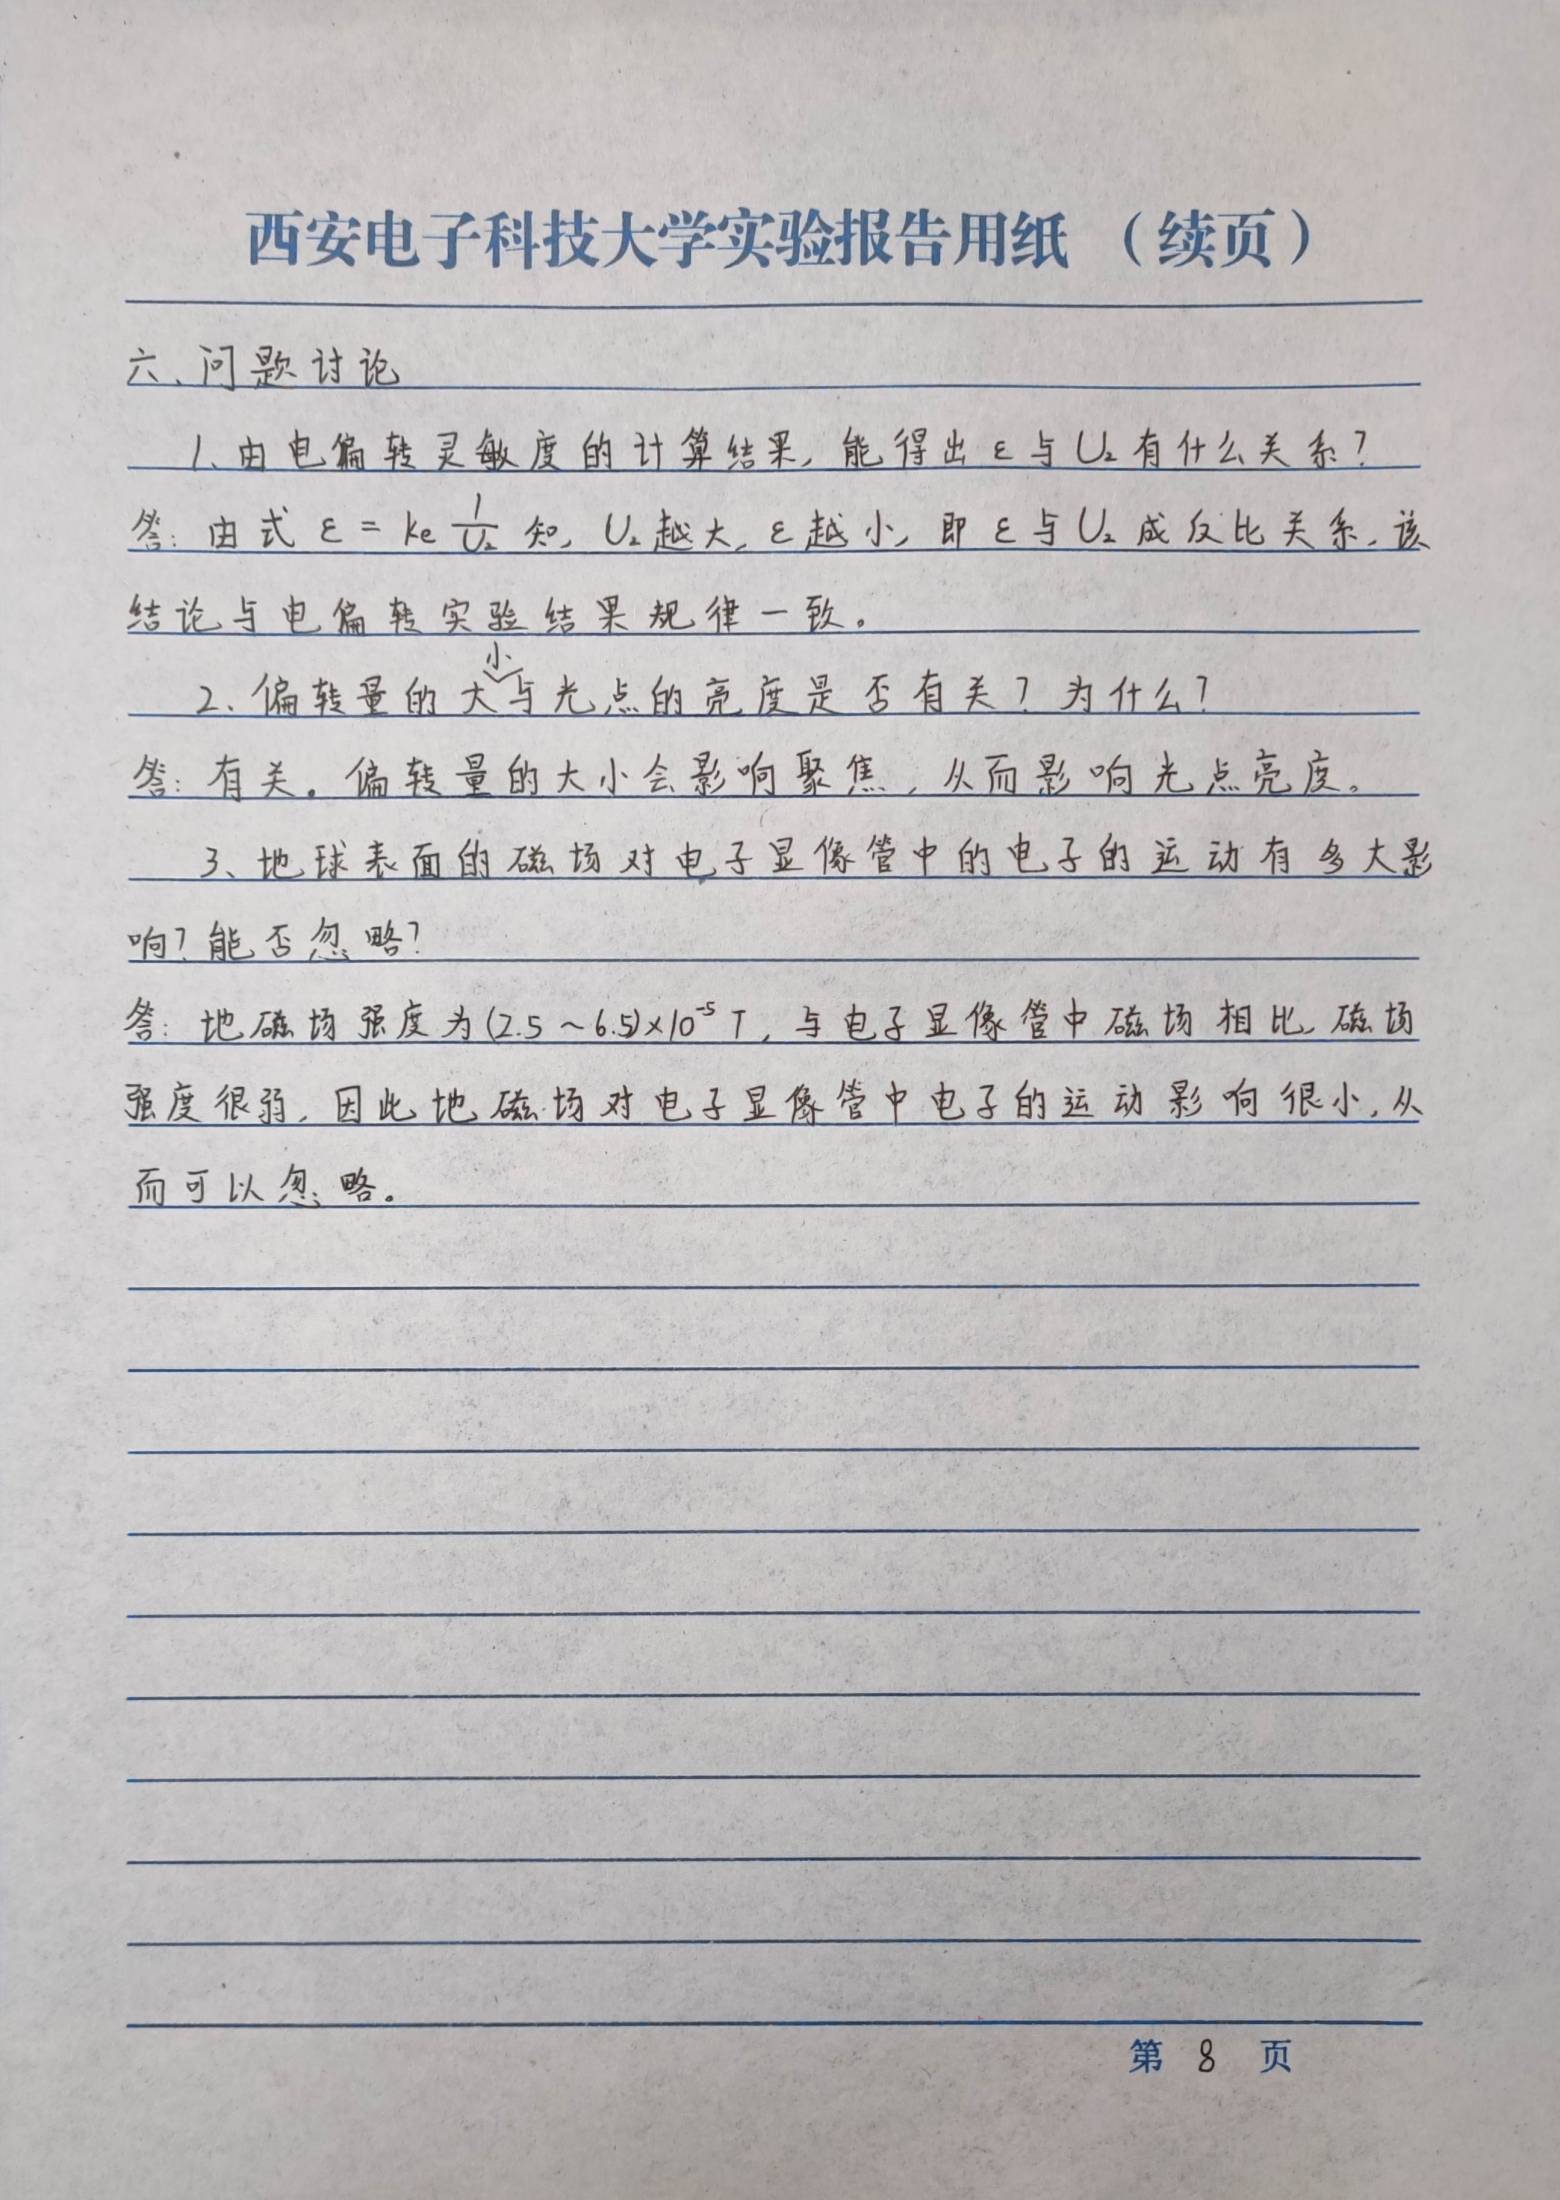 西安电子科技大学实验报告用纸 （续页）
六、问题讨论
1、由电偏转灵敏度的计算结果，能得出 ε 与 U₂ 有什么关系？
答：由式 ε = ke 1/U₂ 知，U₂ 越大，ε 越小，即 ε 与 U₂ 成反比关系，该
结论与电偏转实验结果规律一致。
2、偏转量的大小与光点的亮度是否有关？为什么？
答：有关。偏转量的大小会影响聚焦，从而影响光点亮度。
3、地球表面的磁场对电子显像管中的电子的运动有多大影
响？能否忽略？
答：地磁场强度为(2.5～6.5)×10⁻⁵ T，与电子显像管中磁场相比，磁场
强度很弱，因此地磁场对电子显像管中电子的运动影响很小，从
而可以忽略。
第 8 页